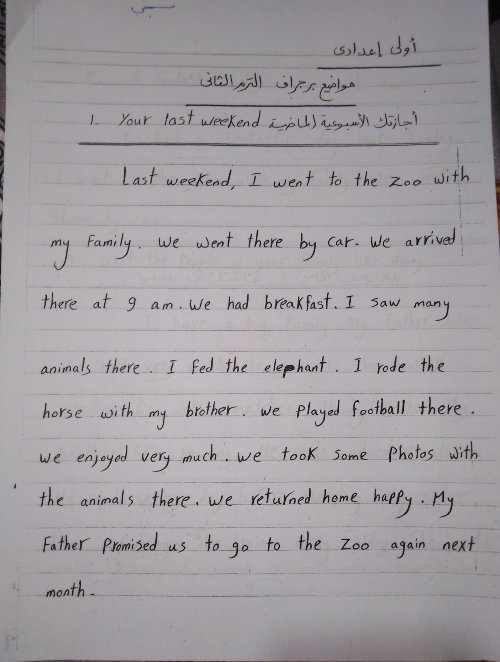 أولى إعدادى
مواضيع برجراف الترم الثانى
1. Your last weekend أجازتك الأسبوعية الماضية
Last weekend, I went to the zoo with
my Family. we went there by car. we arrived
there at 9 am. we had breakfast. I saw many
animals there. I fed the elephant. I rode the
horse with my brother. we played football there.
we enjoyed very much. we took some photos with
the animals there. we returned home happy. My
Father promised us to go to the zoo again next
month.